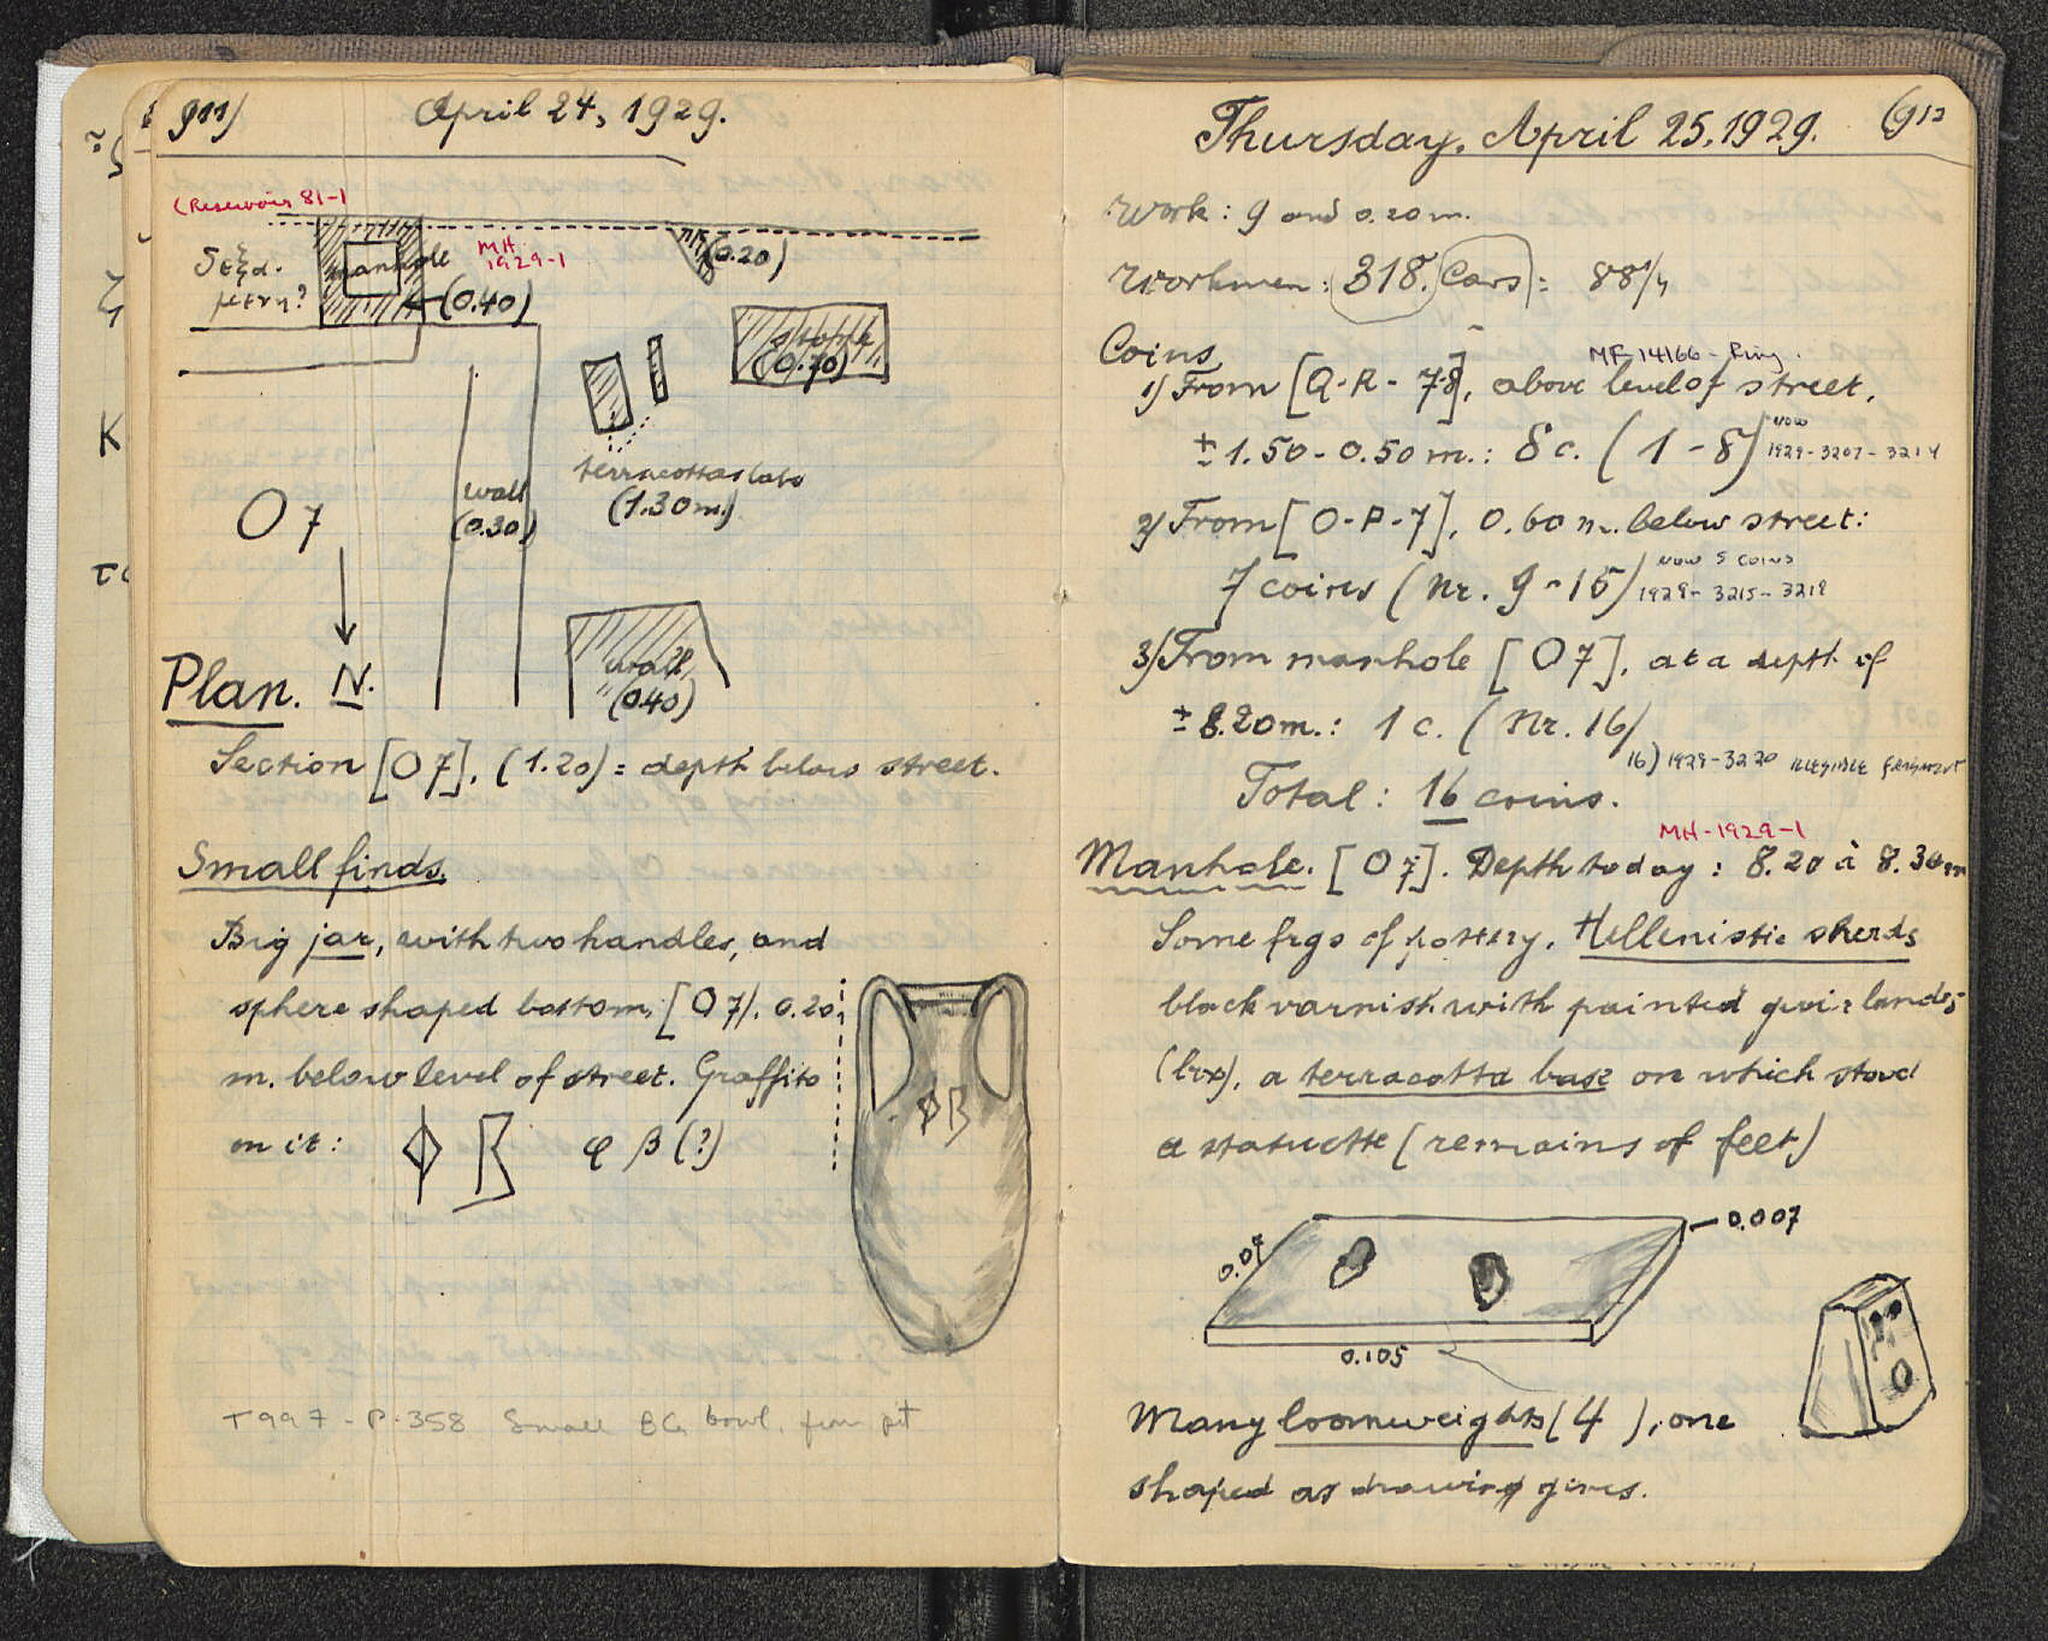 911)
April 24, 1929.
(Reservoir 81-1
manhole
MH
1929-1
(0.20)
(0.40)
stone
(0.70)
terracotta slabs
(1.30 m.)
wall
(0.30)
O 7
wall
(0.40)
Plan. N.
Section [O 7]. (1.20) = depth below street.
Small finds.
Big jar, with two handles, and
sphere shaped bottom, [O 7]. 0.20
m. below level of street. Graffito
on it: Φ Β φ β (?)
ΦΒ
T997 - P-358 Small BG bowl. from pit
Thursday, April 25, 1929. (912
Work: 9 and 0.20 m.
Workmen: 318. Cars =
Coins
MF-14166 - Ring.
1) From [Q-R-7-8], above level of street,
± 1.50-0.50 m.: 8 c. (1-8) now
1929-3207-3214
2) From [O-P-7], 0.60 m. below street:
7 coins (Nr. 9-15) now 5 coins
1929-3215-3219
3) From manhole [O 7], at a depth of
± 8.20 m.: 1 c. (Nr. 16)
16) 1929-3220 illegible fragment
Total: 16 coins.
MH-1929-1
Manhole. [O 7]. Depth today: 8.20 à 8.30 m
Some frgs of pottery. Hellenistic sherds
black varnish with painted guirlands
a terracotta base on which stood
a statuette (remains of feet)
0.007
0.07
0.105
Many loomweights (4), one
shaped as drawing gives.